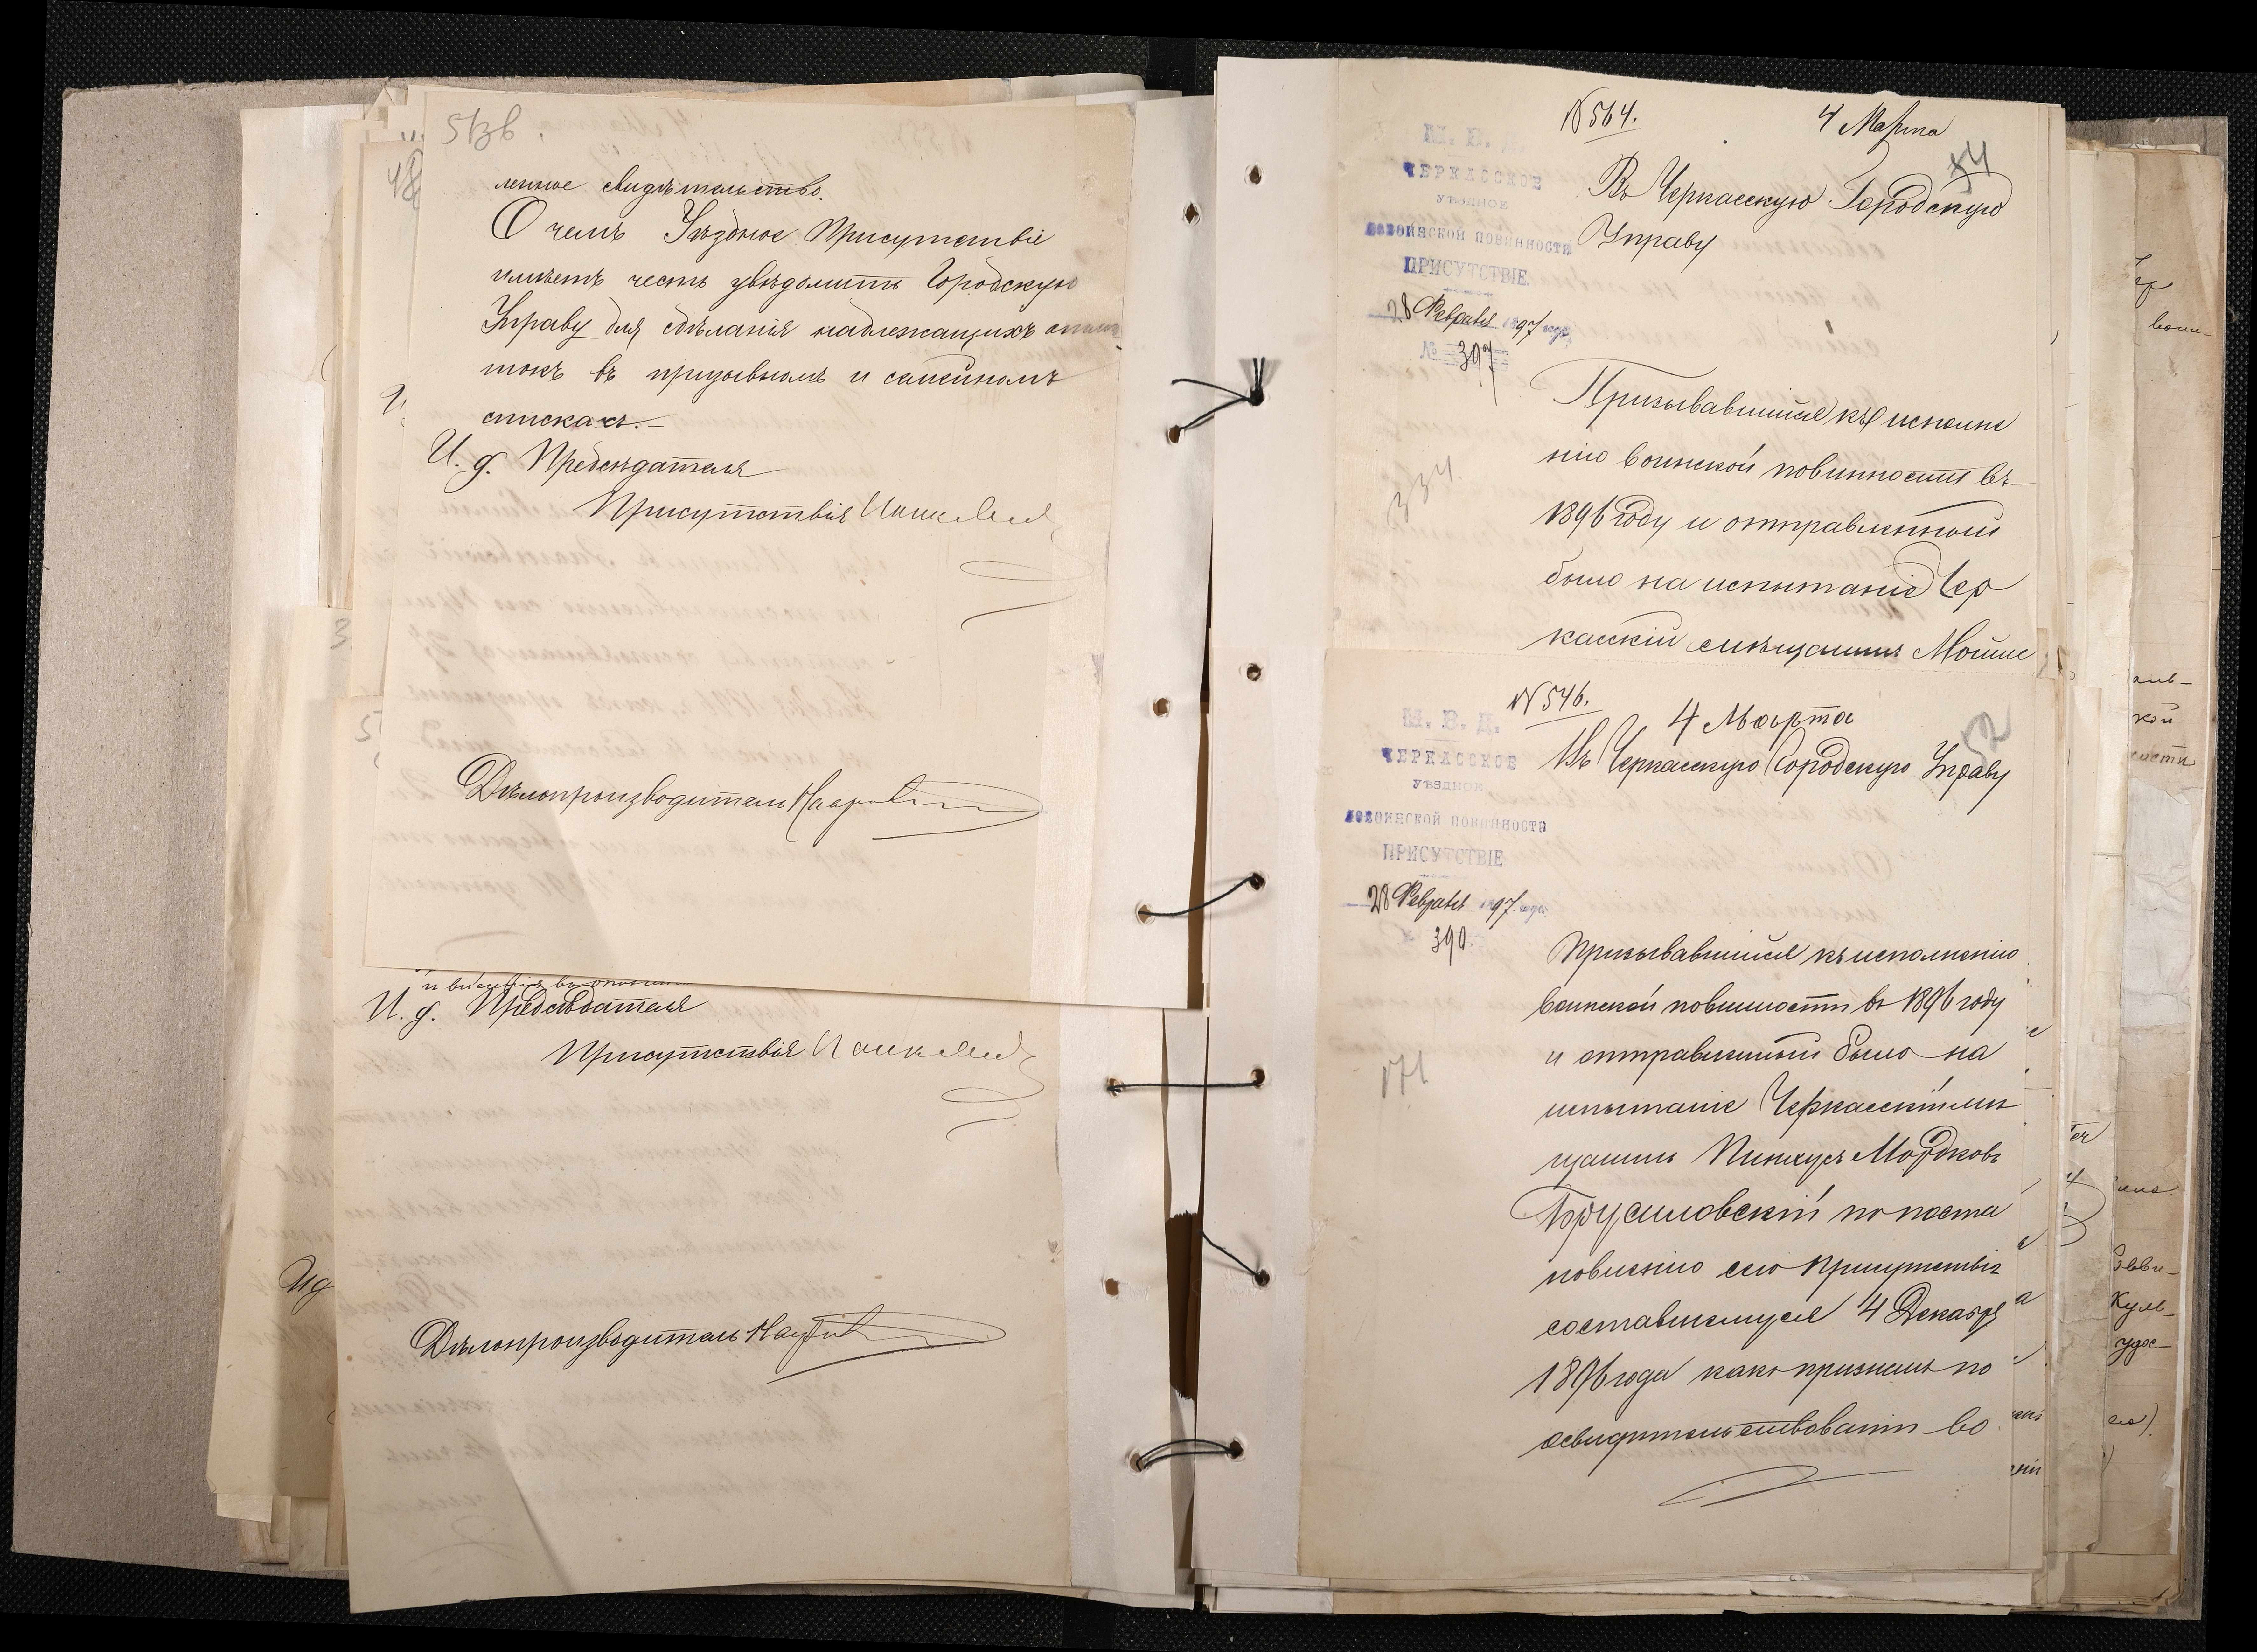 51зв.
ленное свидѣтельство.
О чемъ Уѣздное Присутствіе
имѣетъ честь увѣдомить Городскую
Управу для сдѣланія надлежащихъ
въ призывномъ и семейномъ
спискахъ.—
И. д. Предсѣдателя
Присутствія
Дѣлопроизводитель
И. д. Предсѣдателя
Присутствія
Дѣлопроизводитель
№ 564.
4 Марта
М. В. Д.
ЧЕРКАССКОЕ
УѢЗДНОЕ
ПОВОИНСКОЙ ПОВИННОСТИ
ПРИСУТСТВІЕ.
28 Февраля 1897 года
№ 397
Въ Черкасскую Городскую
Управу
334
Призывавшійся къ исполне
нію воинской повинности въ
1896 году и отправленный
было на испытаніе Чер
касскій мѣщанинъ Мошко
№ 546.
4 Марта
52
М. В. Д.
ЧЕРКАССКОЕ
УѢЗДНОЕ
ПОВОИНСКОЙ ПОВИННОСТИ
ПРИСУТСТВІЕ
28 Февраля 1897 года
390.
Въ Черкасскую Городскую Управу
171
Призывавшійся къ исполненію
воинской повинности въ 1896 году
и отправленный было на
испытаніе Черкасскій мѣ
щанинъ Пинхусъ Мордковъ
Брусиловскій по поста
новленію сего Присутствія
составшемуся 4 Декабря
1896 года какъ признанъ по
освидѣтельствованіи во